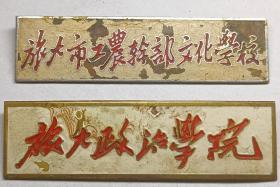 旅大市工農幹部文化學校
旅大政治學院